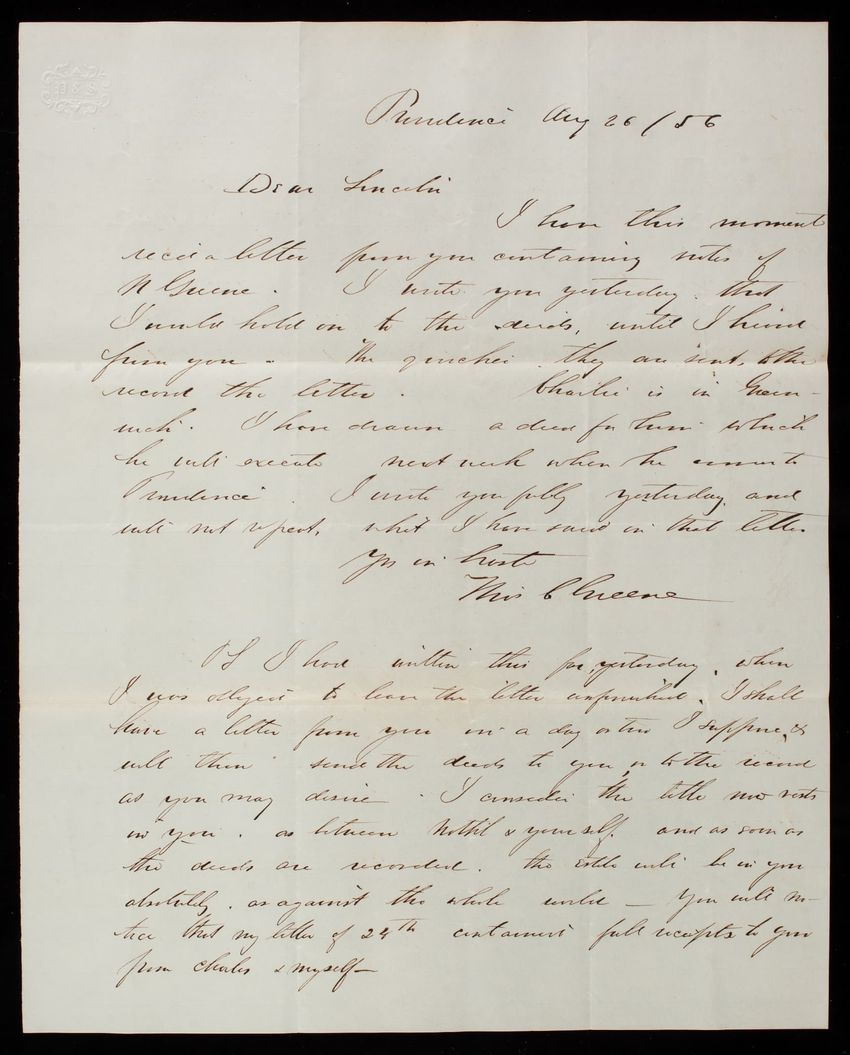 P & S
Providence Aug 26 / 56
Dear Lincoln
I have this moment
recd a letter from you containing notes of
N Greene. I wrote you yesterday that
I would hold on to the deeds, until I heard
from you - The quicker they are sent to the
record the better. Charlie is in Green-
wich. I have drawn a deed for him which
he will execute next week when he comes to
Providence. I wrote you fully yesterday and
will not repeat, what I have said in that letter
Yrs in haste
Thos C Greene
PS I had written this far yesterday, when
I was obliged to leave the letter unfinished. I shall
have a letter from you in a day or two I suppose, &
will then send the deeds to you, or to the record
as you may desire. I consider the title now rests
in you. as between Nathl & yourself. and as soon as
the deeds are recorded. the title will be in you
absolutely. as against the whole world — You will no-
tice that my letter of 24th contained full receipts to you
from Charles & myself—